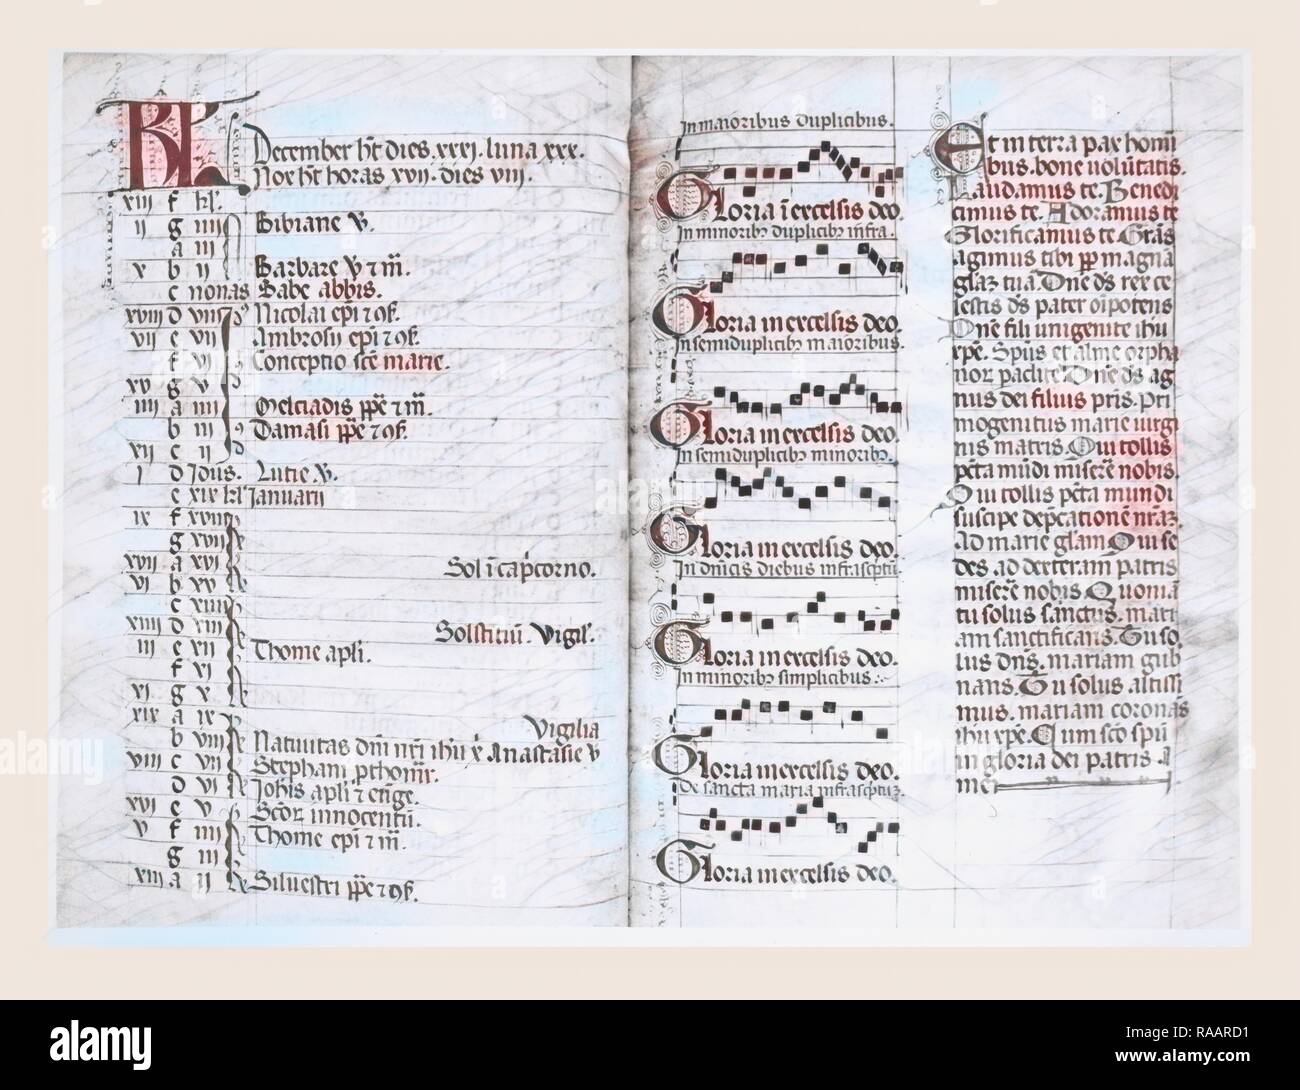 KL
December ht dies .xxxj. luna xxx.
Nox ht horas xvii. dies viij.
xiij f kl'.
ij g iiij Bibiane v̄.
a iij
x b ij Barbare v̄ ⁊ m̄.
c nonas Sabe abbis.
xviij d viij Nicolai ep̄i ⁊ ꝯf.
vij e vij Ambrosii ep̄i ⁊ ꝯf.
f vj Conceptio scē marie.
xv g v
iiij a iiij Melciadis pp̄e ⁊ m̄.
b iij Damasi pp̄e ⁊ ꝯf.
xij c ij
j d Idus. Lucie v̄.
e xix kl' Januarii
ix f xviij
g xvij
xvij a xvj Sol ī cap̄corno.
vj b xv
c xiiij
xiiij d xiij Solsticiū. Vigil'.
iij e xij Thome apl̄i.
f xj
xj g x
xix a ix Vigilia
b viij Nativitas dn̄i nr̄i ihū x̄ Anastasie v̄
viij c vij Stephani ꝓthom̄r.
d vj Johīs apl̄i ⁊ eūge.
xvj e v Scōꝝ innocentū.
v f iiij Thome ep̄i ⁊ m̄.
g iij
xiij a ij Silvestri pp̄e ⁊ ꝯf.
In maioribus duplicibus.
Gloria ī excelsis deo.
In minoribꝫ duplicibꝫ infra.
Gloria in excelsis deo.
In semiduplicibꝫ maioribus.
Gloria in excelsis deo.
In semiduplicibꝫ minoribꝫ.
Gloria in excelsis deo.
In dn̄icis diebus infrasc̄ptū.
Gloria in excelsis deo.
In minoribꝫ simplicibus.
Gloria in excelsis deo.
De sancta maria infrasc̄ptuꝫ.
Gloria in excelsis deo.
Et in terra pax homī
bus. bone volūtatis.
Laudamus te. Benedi
cimus te. Adoramus te
Glorificamus te. Grās
agimus tibi ꝓp magnā
glaꝫ tuā. Dn̄e ds̄ rex ce
lestis ds̄ pater oīpotens
Dn̄e fili unigenite ihū
xp̄e. Sp̄us et alme orpha
noꝝ paclite. Dn̄e ds̄ ag
nus dei filius pris. Pri
mogenitus marie virgi
nis matris. Qui tollis
pc̄ta mūdi miserē nobis
Qui tollis pc̄ta mundi
suscipe dep̄cationē nr̄aꝫ.
Ad marie glam Qui se
des ad dexteram patris
miserē nobis Quoniā
tu solus sanctus. mari
am sanctificans. Tu so
lus dn̄s. mariam gub
nans. Tu solus altissi
mus. mariam coronās
ihū xp̄e. Cum scō spū
in gloria dei patris A
men
alamy
Image ID: RAARD1
www.alamy.com